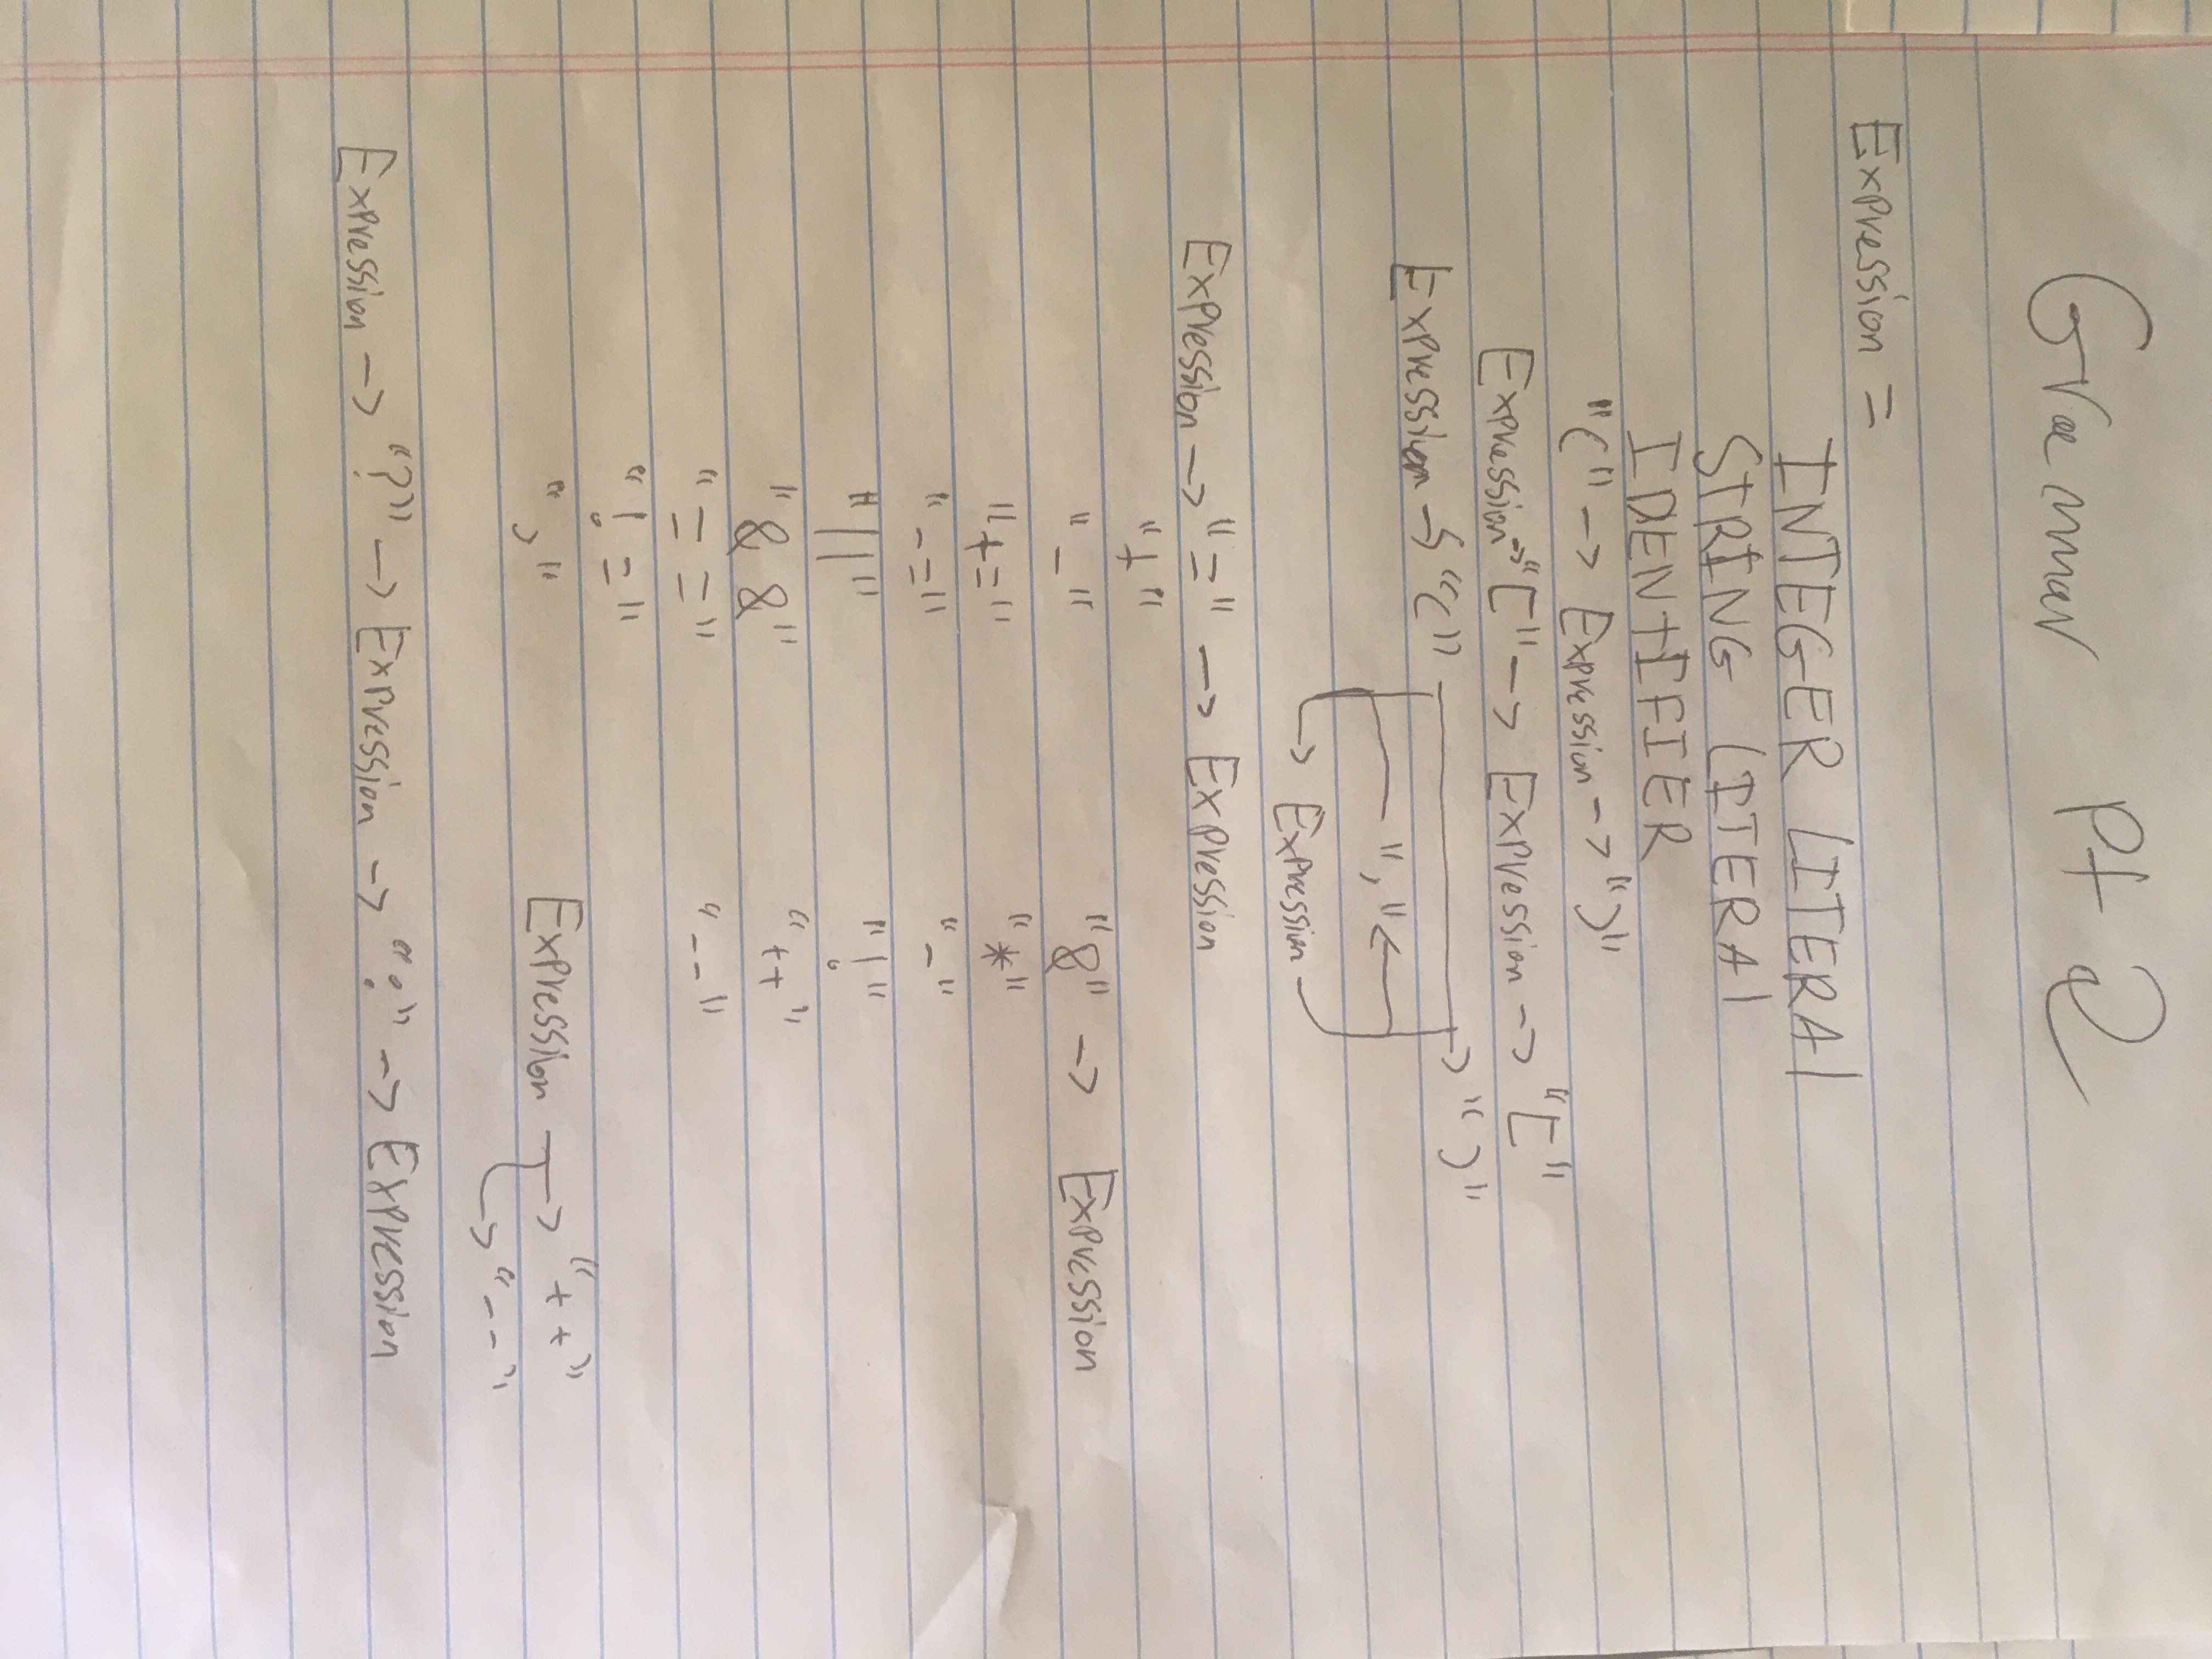 Grammar Pt 2
Expression =
INTEGER LITERAl
STRING LITERAl
IDENtIFIER
"(" -> Expression -> ")"
Expression -> "[" -> Expression -> "]"
Expression -> "(" -> ")"
"," <-
-> Expression
Expression -> "=" -> Expression
"+"
"-" "&" -> Expression
"+=" "*"
"-=" "-"
"||" "!"
"&&" "++"
"==" "--"
"!="
"," Expression -> "++"
-> "--"
Expression -> "?" -> Expression -> ":" -> Expression